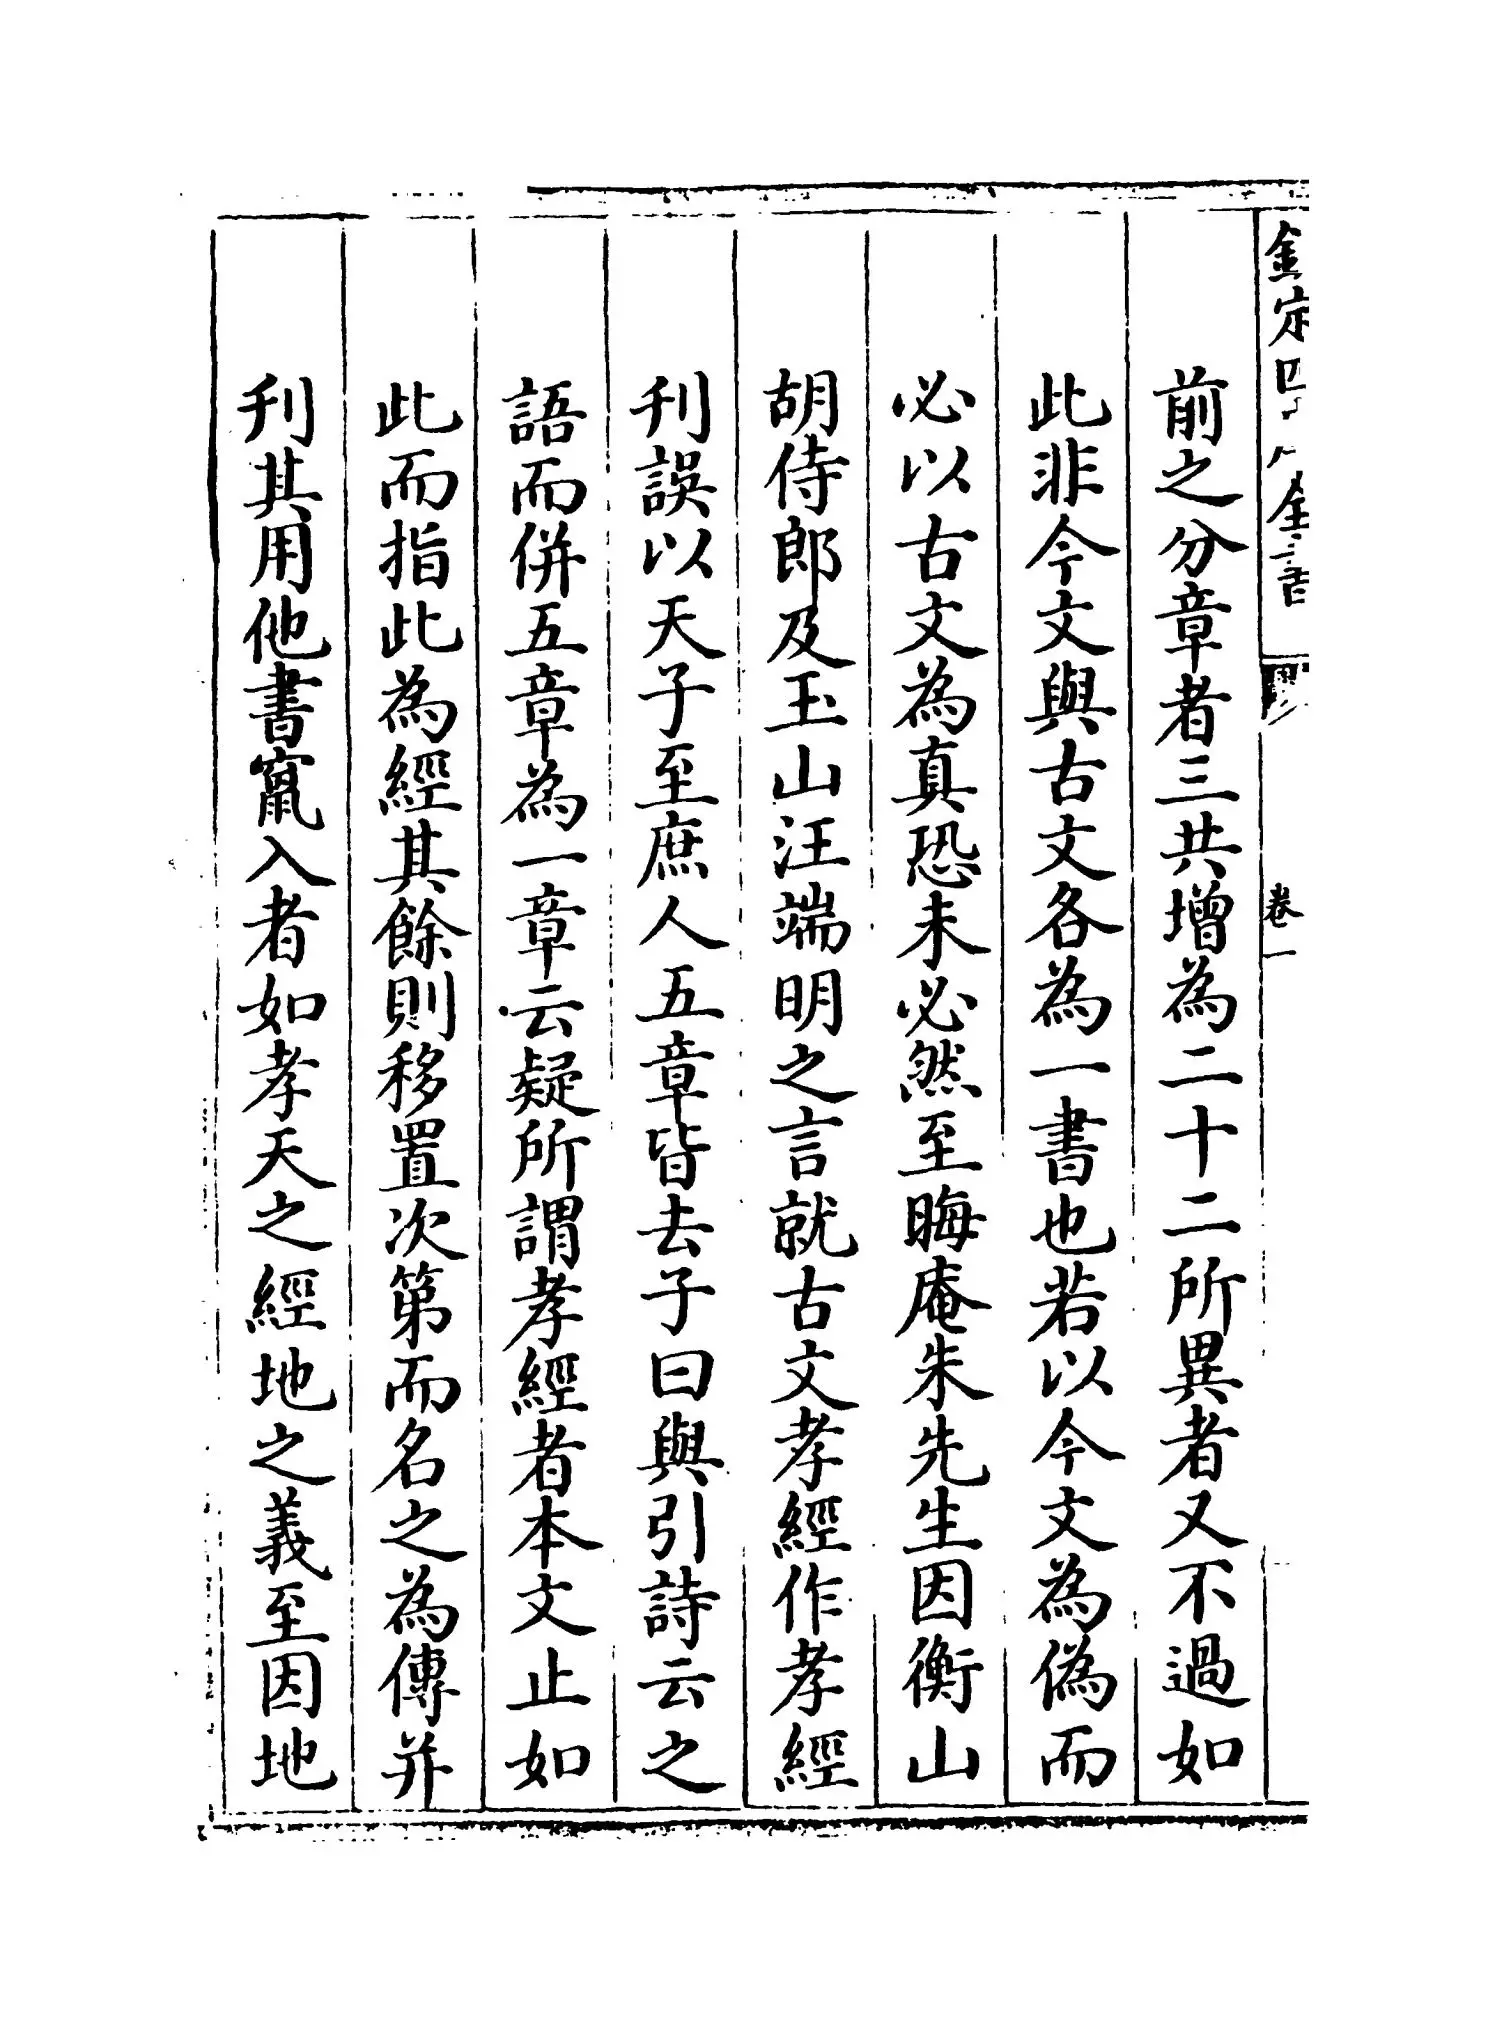 欽定四庫全書
卷一
前之分章者三共增為二十二所異者又不過如
此非今文與古文各為一書也若以今文為偽而
必以古文為真恐未必然至晦庵朱先生因衡山
胡侍郎及玉山汪端明之言就古文孝經作孝經
刋誤以天子至庶人五章皆去子曰與引詩云之
語而併五章為一章云疑所謂孝經者本文止如
此而指此為經其餘則移置次第而名之為傳并
刋其用他書竄入者如孝天之經地之義至因地